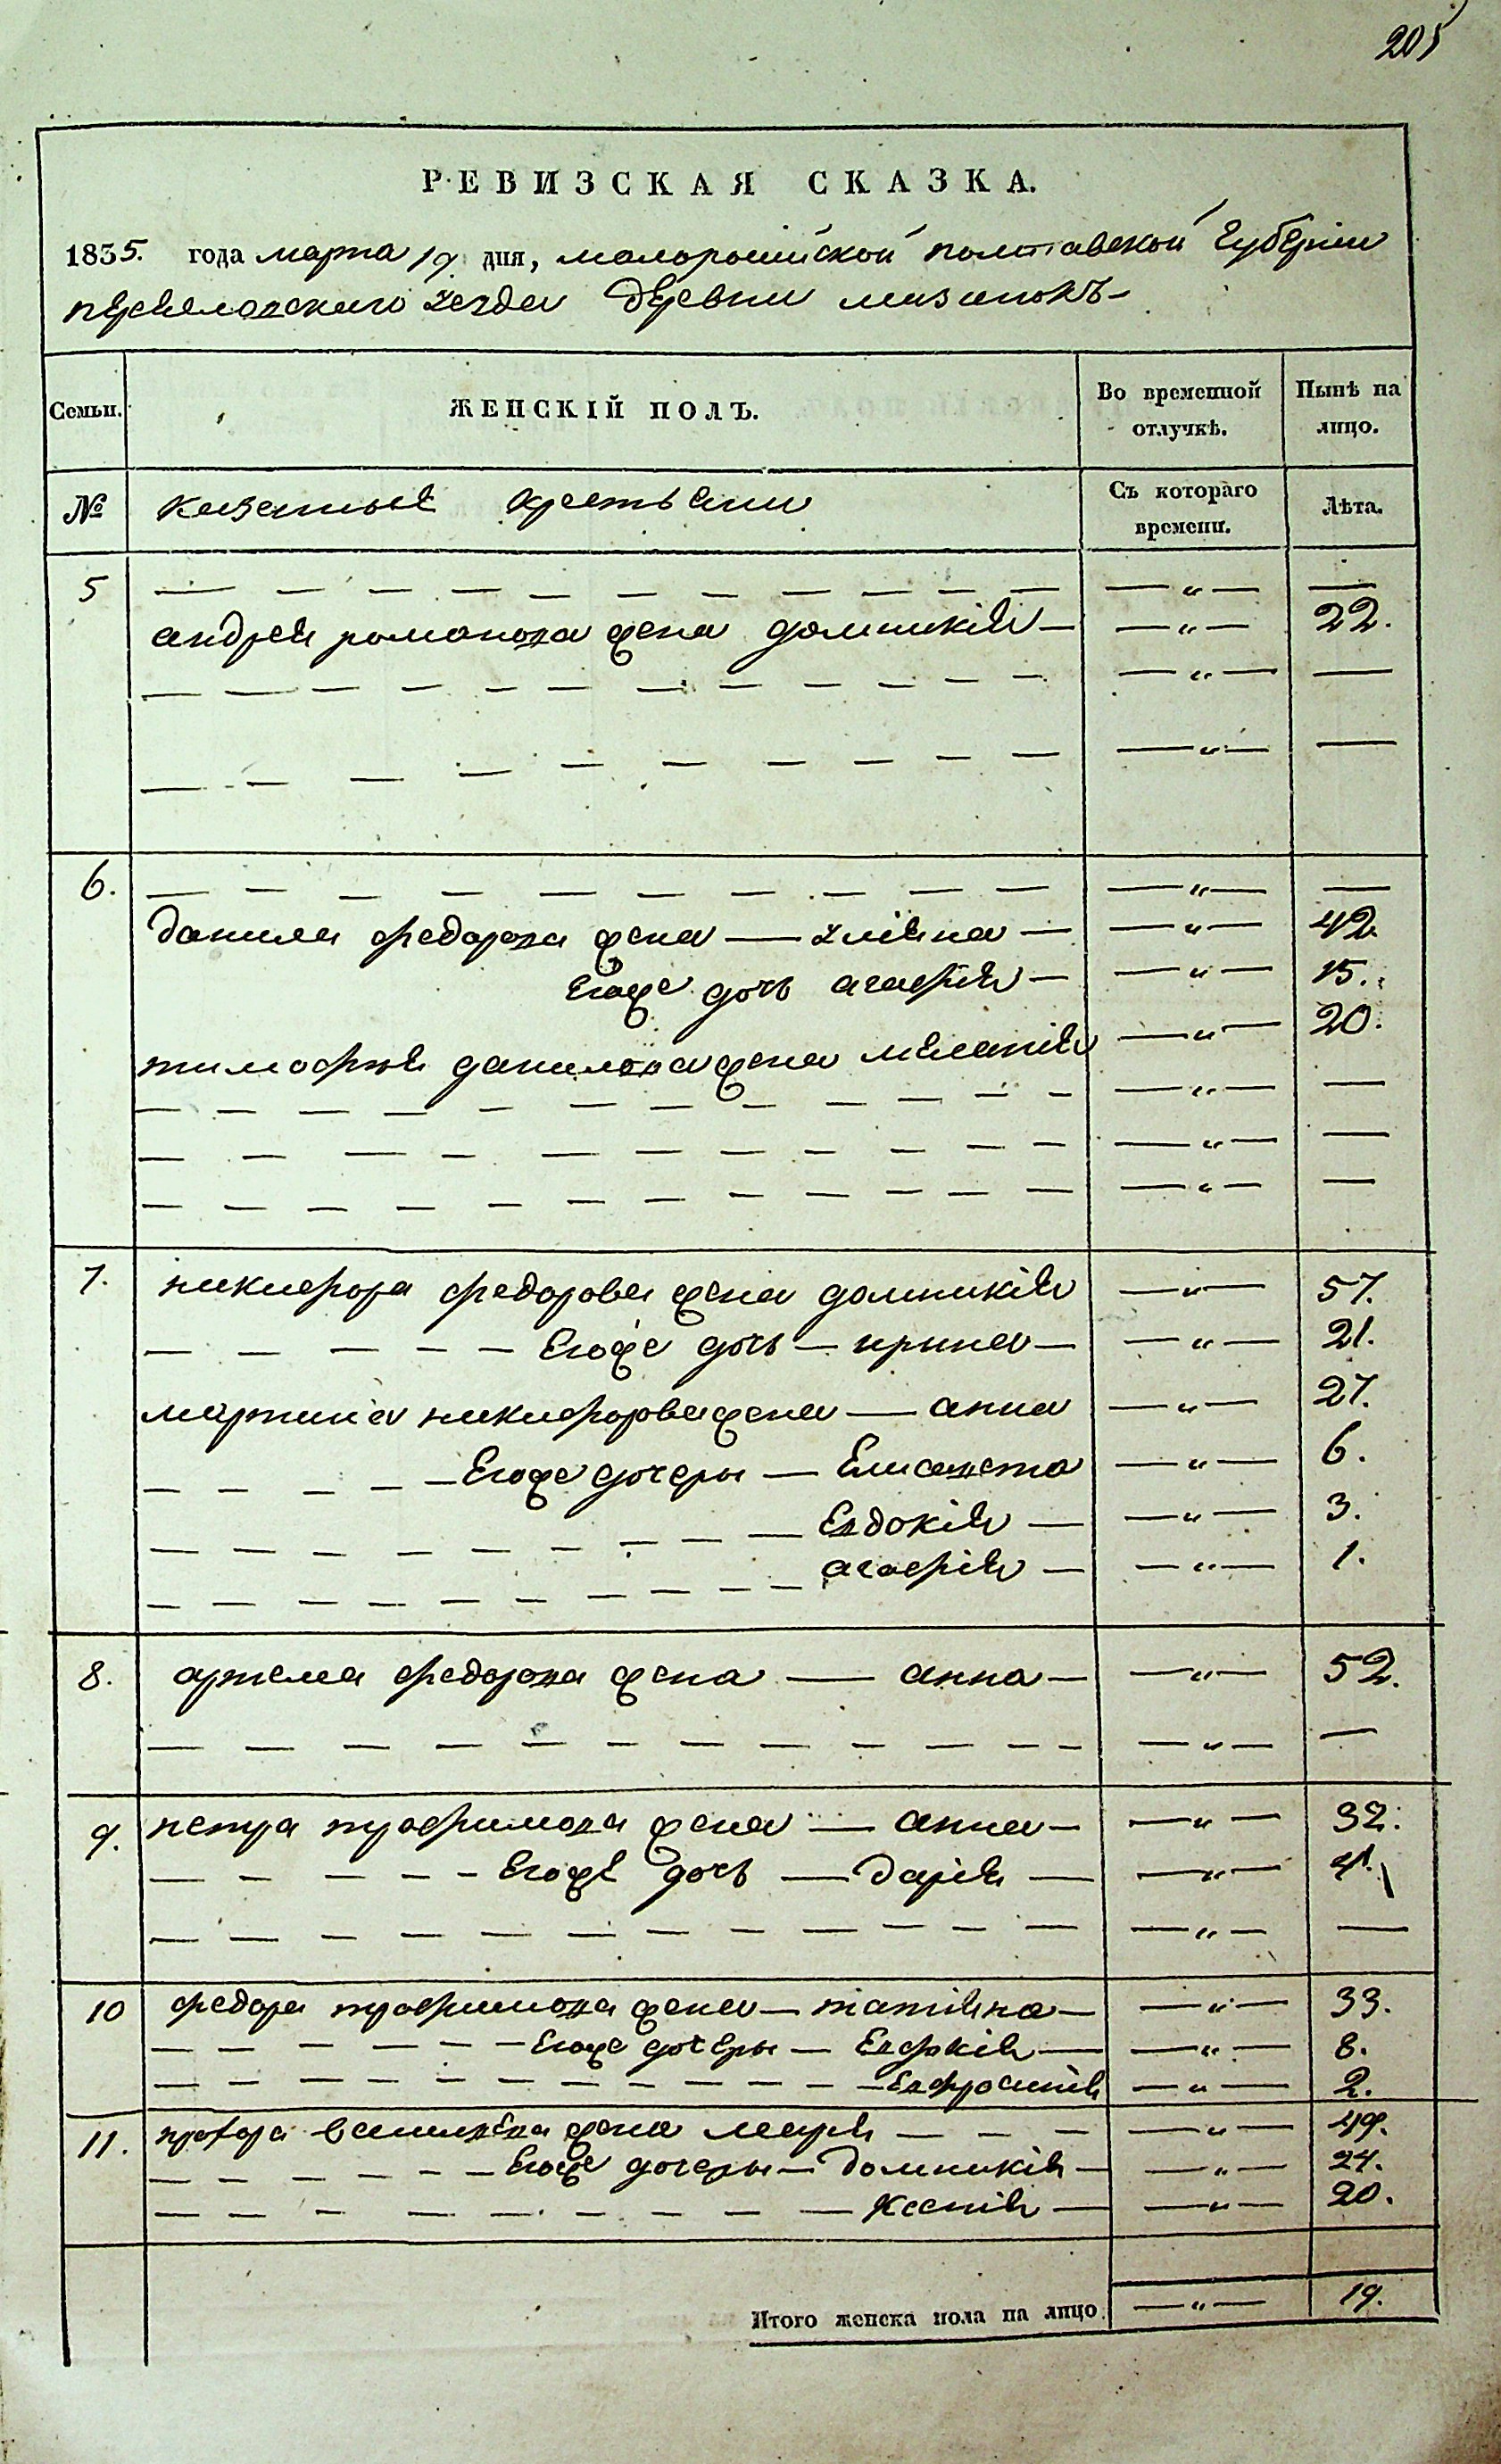 205
РЕВИЗСКАЯ СКАЗКА.
1835. года марта 19. дня, малоросийской полтавской Губерніи
уезда деревни мизинокъ
Семьи.
ЖЕНСКІЙ ПОЛЪ.
Во временной отлучкѣ.
Нынѣ на лицо.
№
казенные крестьяни
Съ котораго времени.
Лѣта.
5 — — — — „ — —
андрея романова жена домникія — — „ — 22.
— — — — „ — —
— — — — „ — —
6. — — — — „ — —
данила федорова жена — уліяна — — „ — 42.
Егоже дочь агафія — — „ — 15.
тимофея данилова жена меланія — „ — 20.
— — — — „ — —
— — — — „ — —
— — — — „ — —
7. никифора федорова жена домникія — „ — 57.
— — — Егоже дочь — ирина — — „ — 21.
мартина никифорова жена — анна — „ — 27.
— — — Егоже дочеры — Елисавета — „ — 6.
— — — Евдокія — — „ — 3.
— — — агафія — — „ — 1.
8. артема федорова жена — анна — — „ — 52.
— — — — „ — —
9. петра трофимова жена — анна — — „ — 32.
— — — Егоже дочь — дарія — — „ — 4.
— — — — „ — —
10 федора трофимова жена — татіяна — — „ — 33.
— — — Егоже дочеры — — „ — 8.
— — — Евфросинія — „ — 2.
11. жена маря — — „ — 49.
— — — Егоже дочеры — домникія — — „ — 24.
— — — Ксенія — — „ — 20.
Итого женска пола на лицо. — „ — 19.